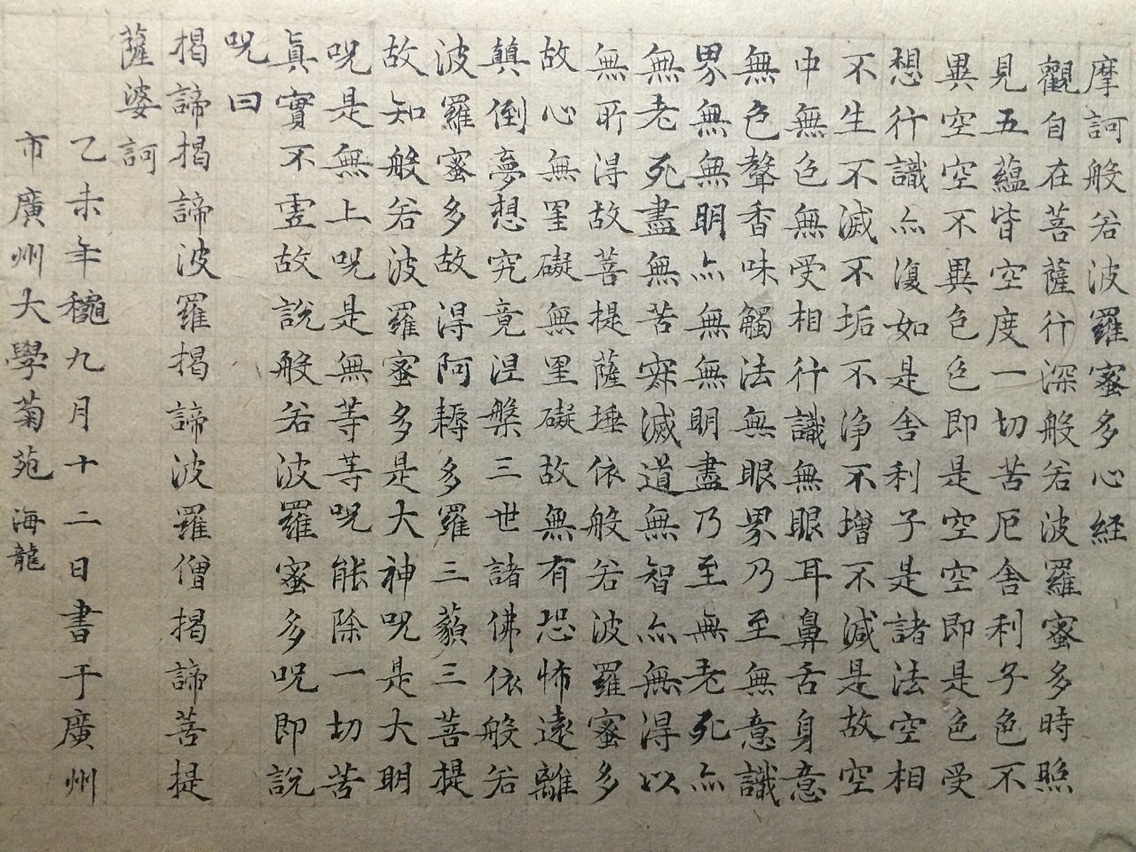 摩訶般若波羅蜜多心経
觀自在菩薩行深般若波羅蜜多時照
見五蘊皆空度一切苦厄舍利子色不
異空空不異色色即是空空即是色受
想行識亦復如是舍利子是諸法空相
不生不滅不垢不净不增不減是故空
中無色無受相行識無眼耳鼻舌身意
無色聲香味觸法無眼界乃至無意識
界無無明亦無無明盡乃至無老死亦
無老死盡無苦寂滅道無智亦無得以
無所得故菩提薩埵依般若波羅蜜多
故心無罣礙無罣礙故無有恐怖遠離
顛倒夢想究竟涅槃三世諸佛依般若
波羅蜜多故得阿耨多羅三藐三菩提
故知般若波羅蜜多是大神呪是大明
呪是無上呪是無等等呪能除一切苦
真實不虛故說般若波羅蜜多呪即說
呪曰
揭諦揭諦波羅揭諦波羅僧揭諦菩提
薩婆訶
乙未年龝九月十二日書于廣州
市廣州大學菊苑海龍